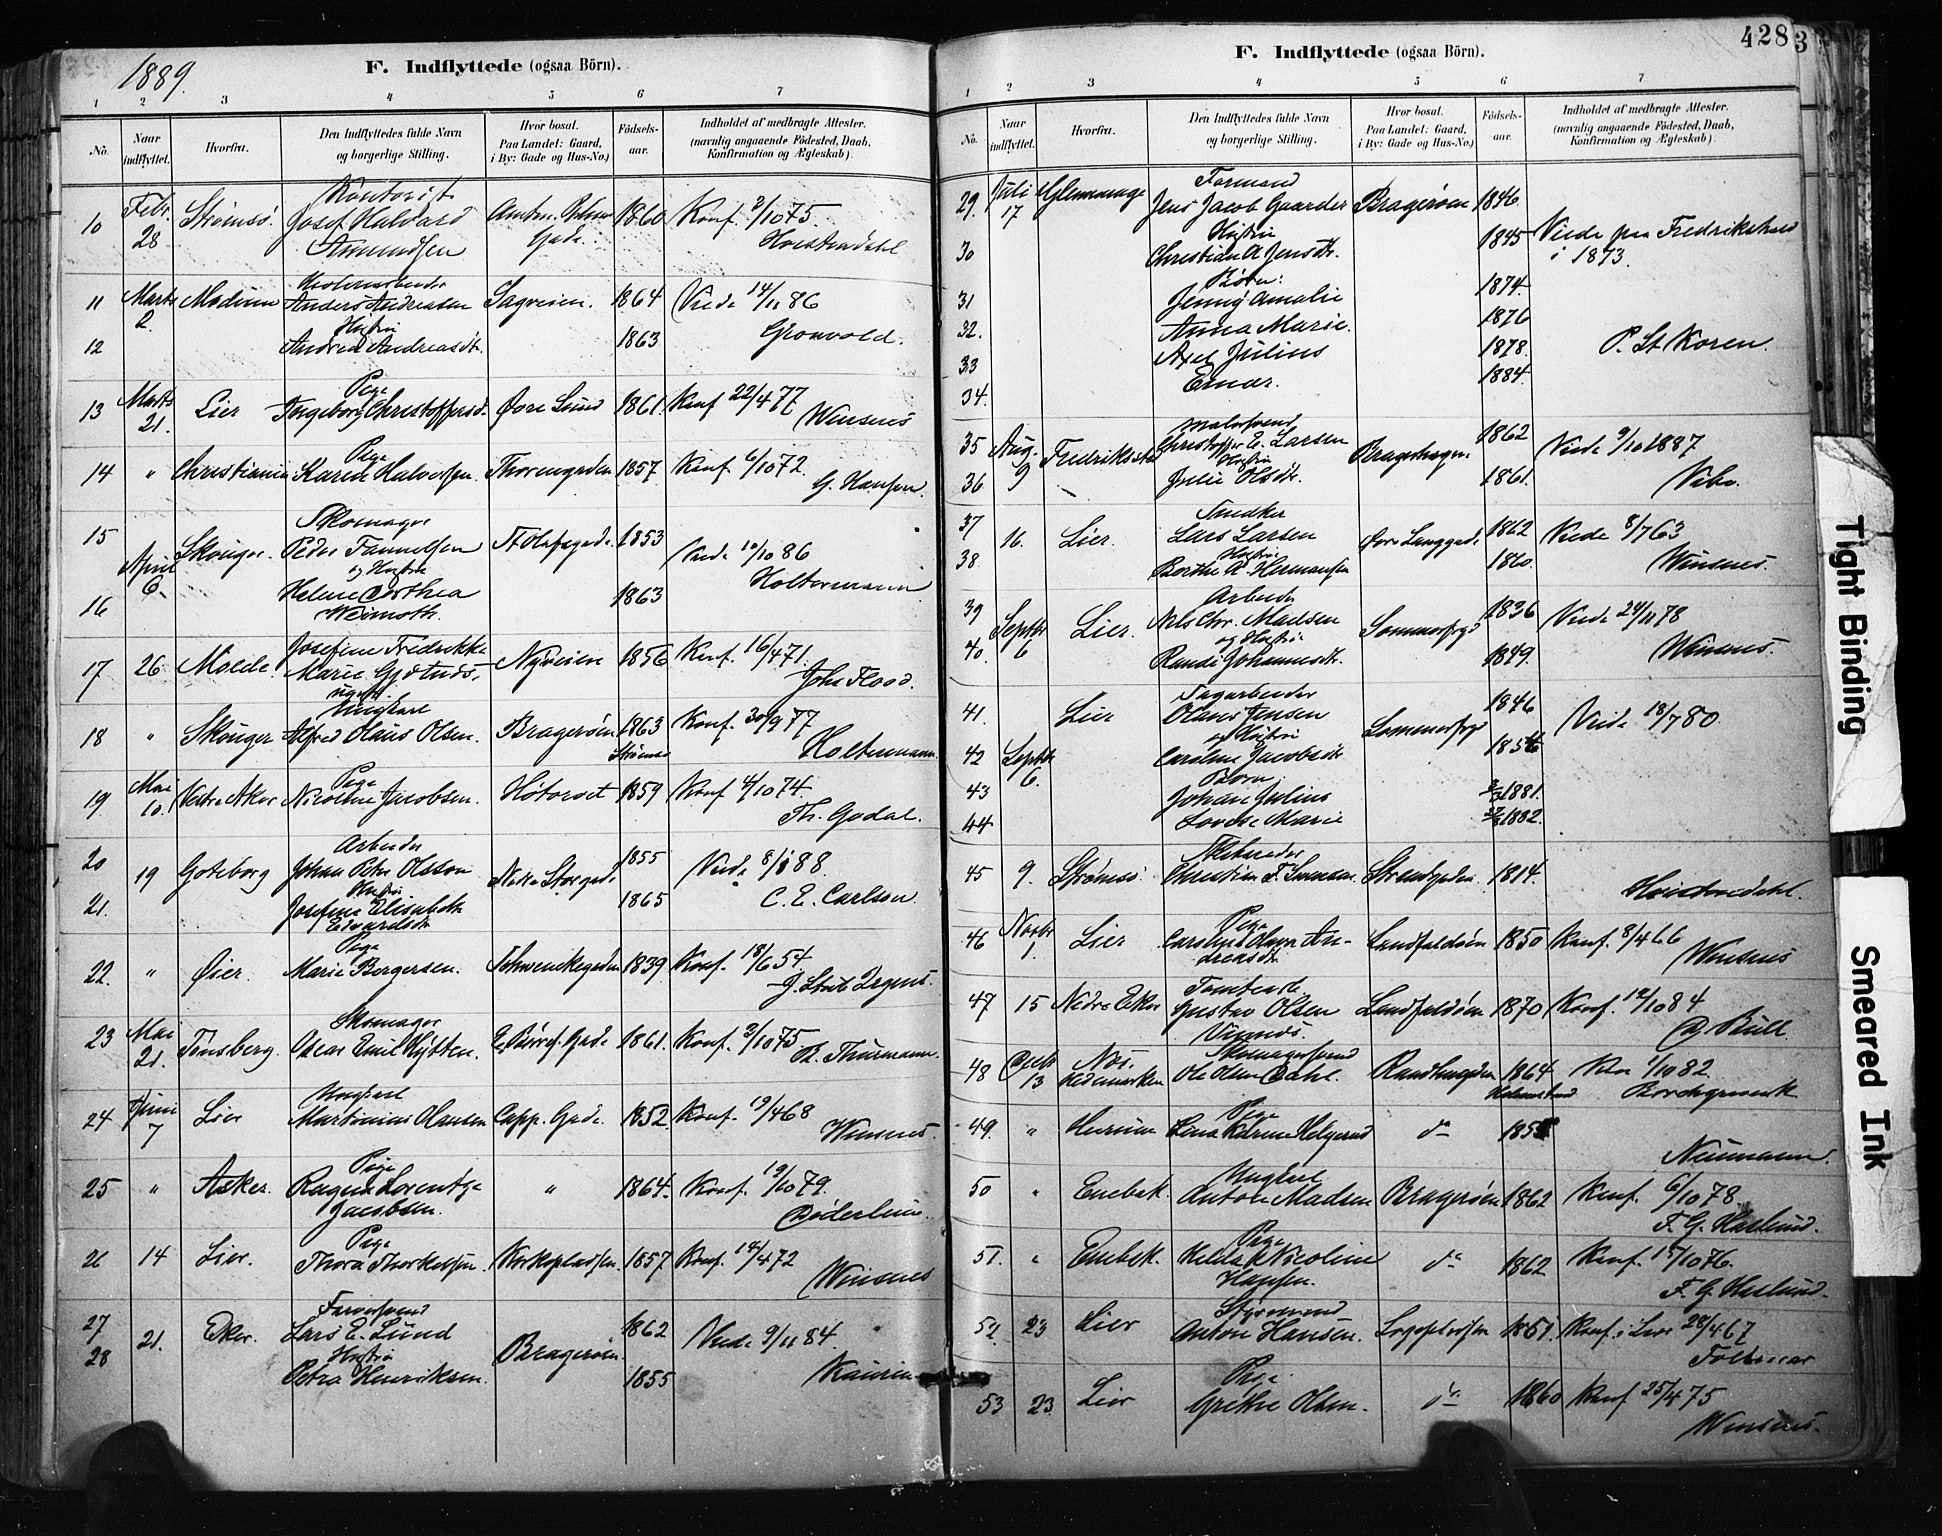 1889.
F. Indflyttede (ogsaa Börn).
1 2 3 4 5 6 7
No.
Naar indflyttet.
Hvorfra.
Den Indflyttedes fulde Navn og borgerlige Stilling.
Hvor bosat. Paa Landet: Gaard, i By: Gade og Hus-No.)
Födsels-aar.
Indholdet af medbragte Attester. (navnlig angaaende Födested, Daab, Konfirmation og Ægteskab).
Kontorist
10 Febr. 28 Strømsø. Josef Halvard Amundsen Gade. 1860 Konf. 3/10 75
11 Marts 2. Modum Anders Andreasen Sagveien. 1864 Viede 14/11 86
Hustru
12 Andrea Andreasdt. 1863 Gronvold.
Pige
13 Marts 21. Lier Ingeborg Christoffersd. Øvre Lund 1861. Konf 22/4 77
Winsnes
Pige
14 " Christiania Karen Halvorsen. Thornegaden 1857 Konf. 6/10 72
G. Hansen.
Skomager
15 April 6. Skouger. Peder Fannelsen St Olafsgade. 1853 Viede 10/10 86
og Hustru
16 Helene Dorthea 1863 Holtermann
Weimoth.
Josefine Fredrikke
17 26 Molde. Marie Nyveien 1856 Konf. 16/4 71.
John Flood.
Ungkarl
18 " Skouger Alfred Olaus Olsen. Bragerøen 1863 Konf. 30/9 77
Strømsø Holtermann
Pige
19 Mai 10. Vestre Aker Nicoline Jacobsen. Høtorvet 1859 Konf 4/10 74
Th. Godal.
Arbeider
20 19 Goteborg Johan Peter Olsson Nedre Storgade 1855 Viede 88
Hustru
21. Josefina Elisabeth 1865 C. E. Carlson.
Edvardsdt
Pige
22. " Øier. Marie Borgersen. Schwenckegaden 1839 Konf. 18/6 54
Skomager
23 Mai 21. Tønsberg. Oscar Emil Hytten. Gade 1861. Konf. 3/10 75
B. Thurmann.
Ungkarl
24 Juni 7 Lier Martinius Olausen Capp. Gade. 1852. Konf. 19/4 68
Winsnes.
Pige
25 " Asker. Ragna Lorentze " 1864. Konf. 19/10 79.
Jacobsen. Døderlein.
Pige
26 14 Lier. Thora Thorkelsen. Kirkepladsen. 1857 Konf. 14/4 72
Winsnes
Farversvend
27 21. Eker. Lars E. Lund Bragerøen. 1862 Viede 9/11 84.
Hustru
28 Petra Henriksen. 1855 Kaurin
428 3
F. Indflyttede (ogsaa Börn).
1 2 3 4 5 6 7
No.
Naar indflyttet.
Hvorfra.
Den Indflyttedes fulde Navn og borgerlige Stilling.
Hvor bosat. Paa Landet: Gaard, i By: Gade og Hus-No.)
Födsels-aar.
Indholdet af medbragte Attester. (navnlig angaaende Födested, Daab, Konfirmation og Ægteskab).
Formand
29. Juli 17 Glemminge Jens Jacob Gaarder Bragerøen 1846
Hustru
30 Christine A Jensdt. 1845 Viede paa Fredrikshald i 1873.
Børn:
31 Jenny Amalie 1874.
32. Anna Marie. 1876
33 Axel Julius 1878. P. St Koren.
34. Einar. 1884.
Malersvend
35 Aug. 9 Fredrikstad Christoffer E. Larsen 1862 Viede 9/10 1887
Hustru
36 Julie Olsdt. 1861. Vibe.
Snedker
37 16. Lier. Lars Larsen Øvre Langgade 1862 Viede 8/7 63
Hustru
38. Berthe A. Hermansen 1860. Winsnes.
Arbeider
39 Septbr 6 Lier. Nils Chr. Madsen 1836 Viede 24/11 78
og Hustru
40. Randi Johannesdt. 1849. Winsnes.
Sagarbeider
41. Lier Olaus Jensen 1846 Viede 18/7 80.
og Hustru
42 Septbr 6. Caroline Jacobsdt 1856
Børn
43 Johan Julius 1881.
44 Lovise Marie 1882.
45 9. Strømsø. Christian F. Svensen. Strandgaden 1814.
Pige
46 Novbr 1. Lier Olava Andreasdt Landfaldøen 1850 Konf. 8/4 66
Winsnes
47 15 Nedre Eker Gustav Olsen Landfaldøen 1870 Konf. 12/10 84
Bull.
Skomagersvend
48 13 Hedemarken Ole Olsen Dahl. 1864 Kon 1/10 82
Borchgrevink
Pige
49. " Hurum Lina Karine Helgerud do 185
Neumann.
Ungkarl
50 " Enebak. Anton Madsen Bragerøen 1862 Konf. 6/10 78.
F. G. Haslund.
Pige
51. " Enebak. Helda Nicoline do 1862 Konf. 15/10 76.
Hansen. F. G. Haslund.
Styrmand
52. 23 Lier Anton Hansen. 1851. Konf. i Lier 28/4 67
Pige
53 23 Lier Grethe Olsen. do 1860 Konf 25/4 75
Winsnes.
Tight Binding
Smeared Ink